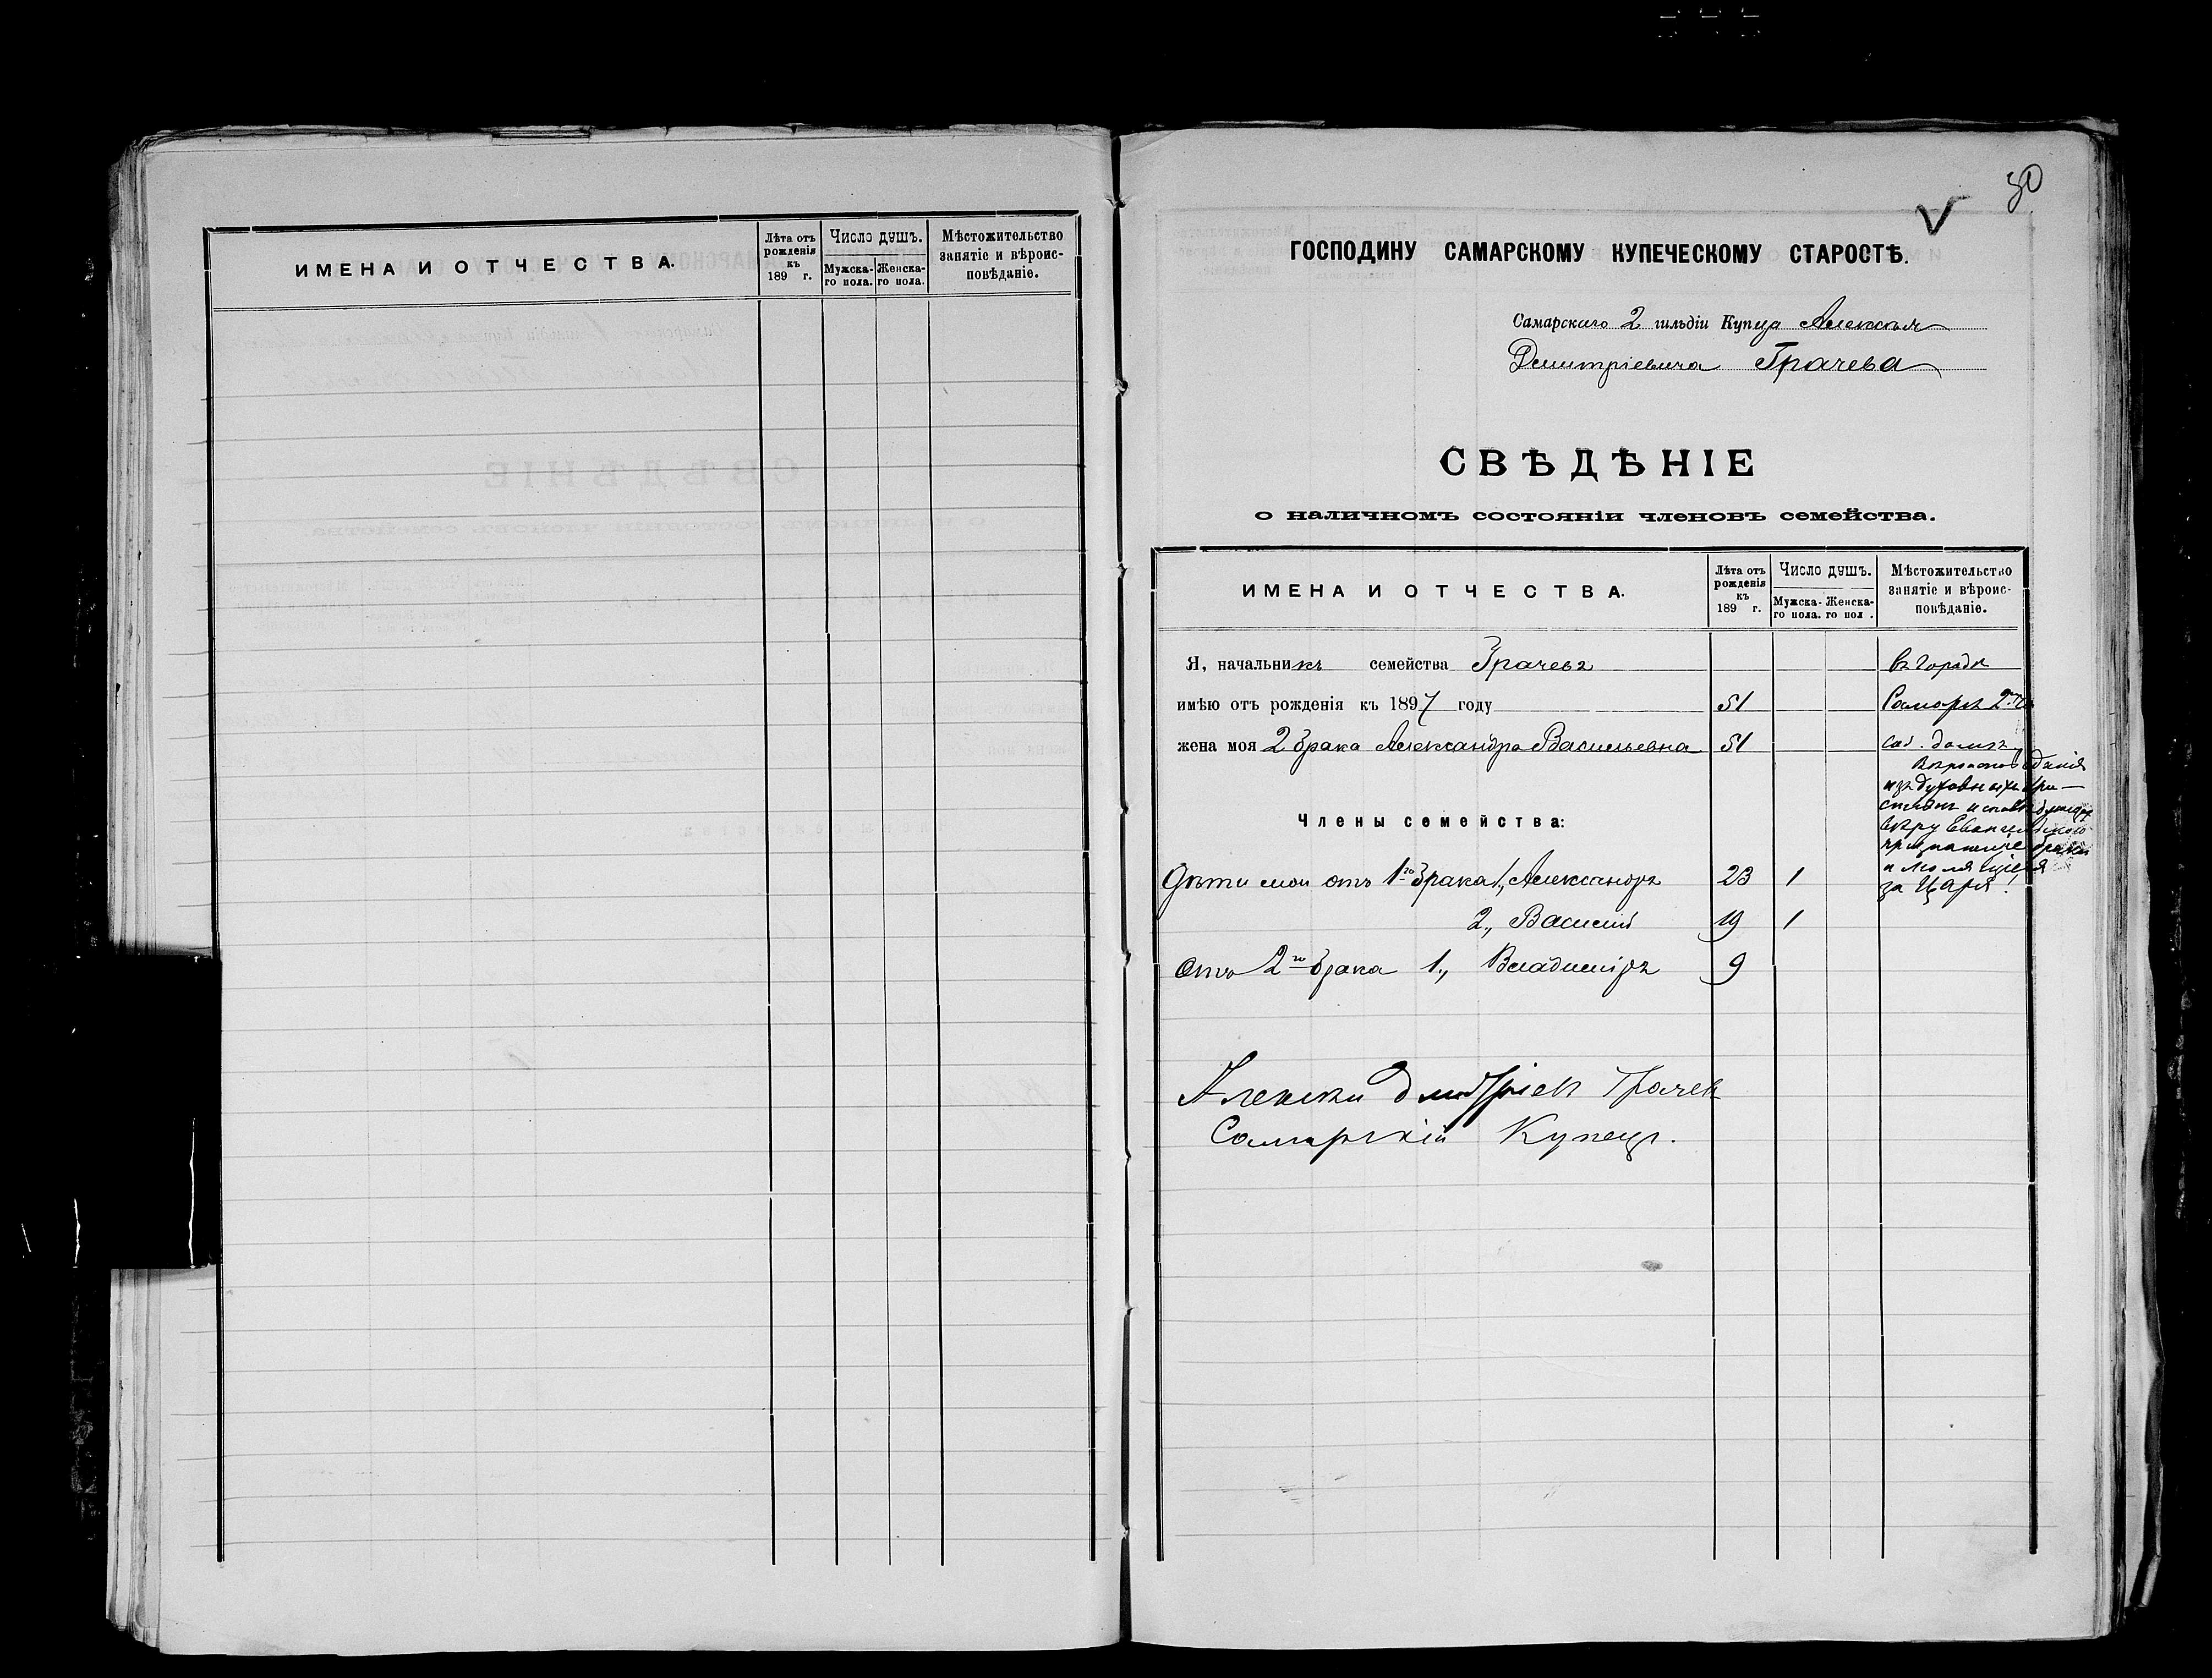 ИМЕНА И ОТЧЕСТВА.
Лѣта отъ рожденія къ 189 г.
Число душъ.
Мужска-го пола.
Женска-го пола.
Мѣстожительство занятіе и вѣроис-повѣданіе.
30
ГОСПОДИНУ САМАРСКОМУ КУПЕЧЕСКОМУ СТАРОСТѢ.
Самарскаго 2 гильдіи Купца Алексѣя
Дмитріевича Грачева
СВѢДѢНІЕ
о наличномъ состояніи членовъ семейства.
ИМЕНА И ОТЧЕСТВА.
Лѣта отъ рожденія къ 189 г.
Число душъ.
Мужска-го пола.
Женска-го пол .
Мѣстожительство занятіе и вѣроис-повѣданіе.
Я, начальникъ семейства Грачевъ въ городѣ
имѣю отъ рожденія къ 1897 году 51 Самарѣ 2
жена моя 2 брака Александра Васильевна 51 соб. домъ
Вѣроисповѣданія
изъ духовныхъ хри-
стьянъ
вѣру Евангельскаго
и молящіеся
за Царя.
Члены семейства:
Дѣти мои отъ 1го брака 1, Александръ 23 1
2, Василій 19 1
Отъ 2го брака 1, Владиміръ 9
Алексѣи Дмитріевъ Грачевъ
Самарскій Купецъ.